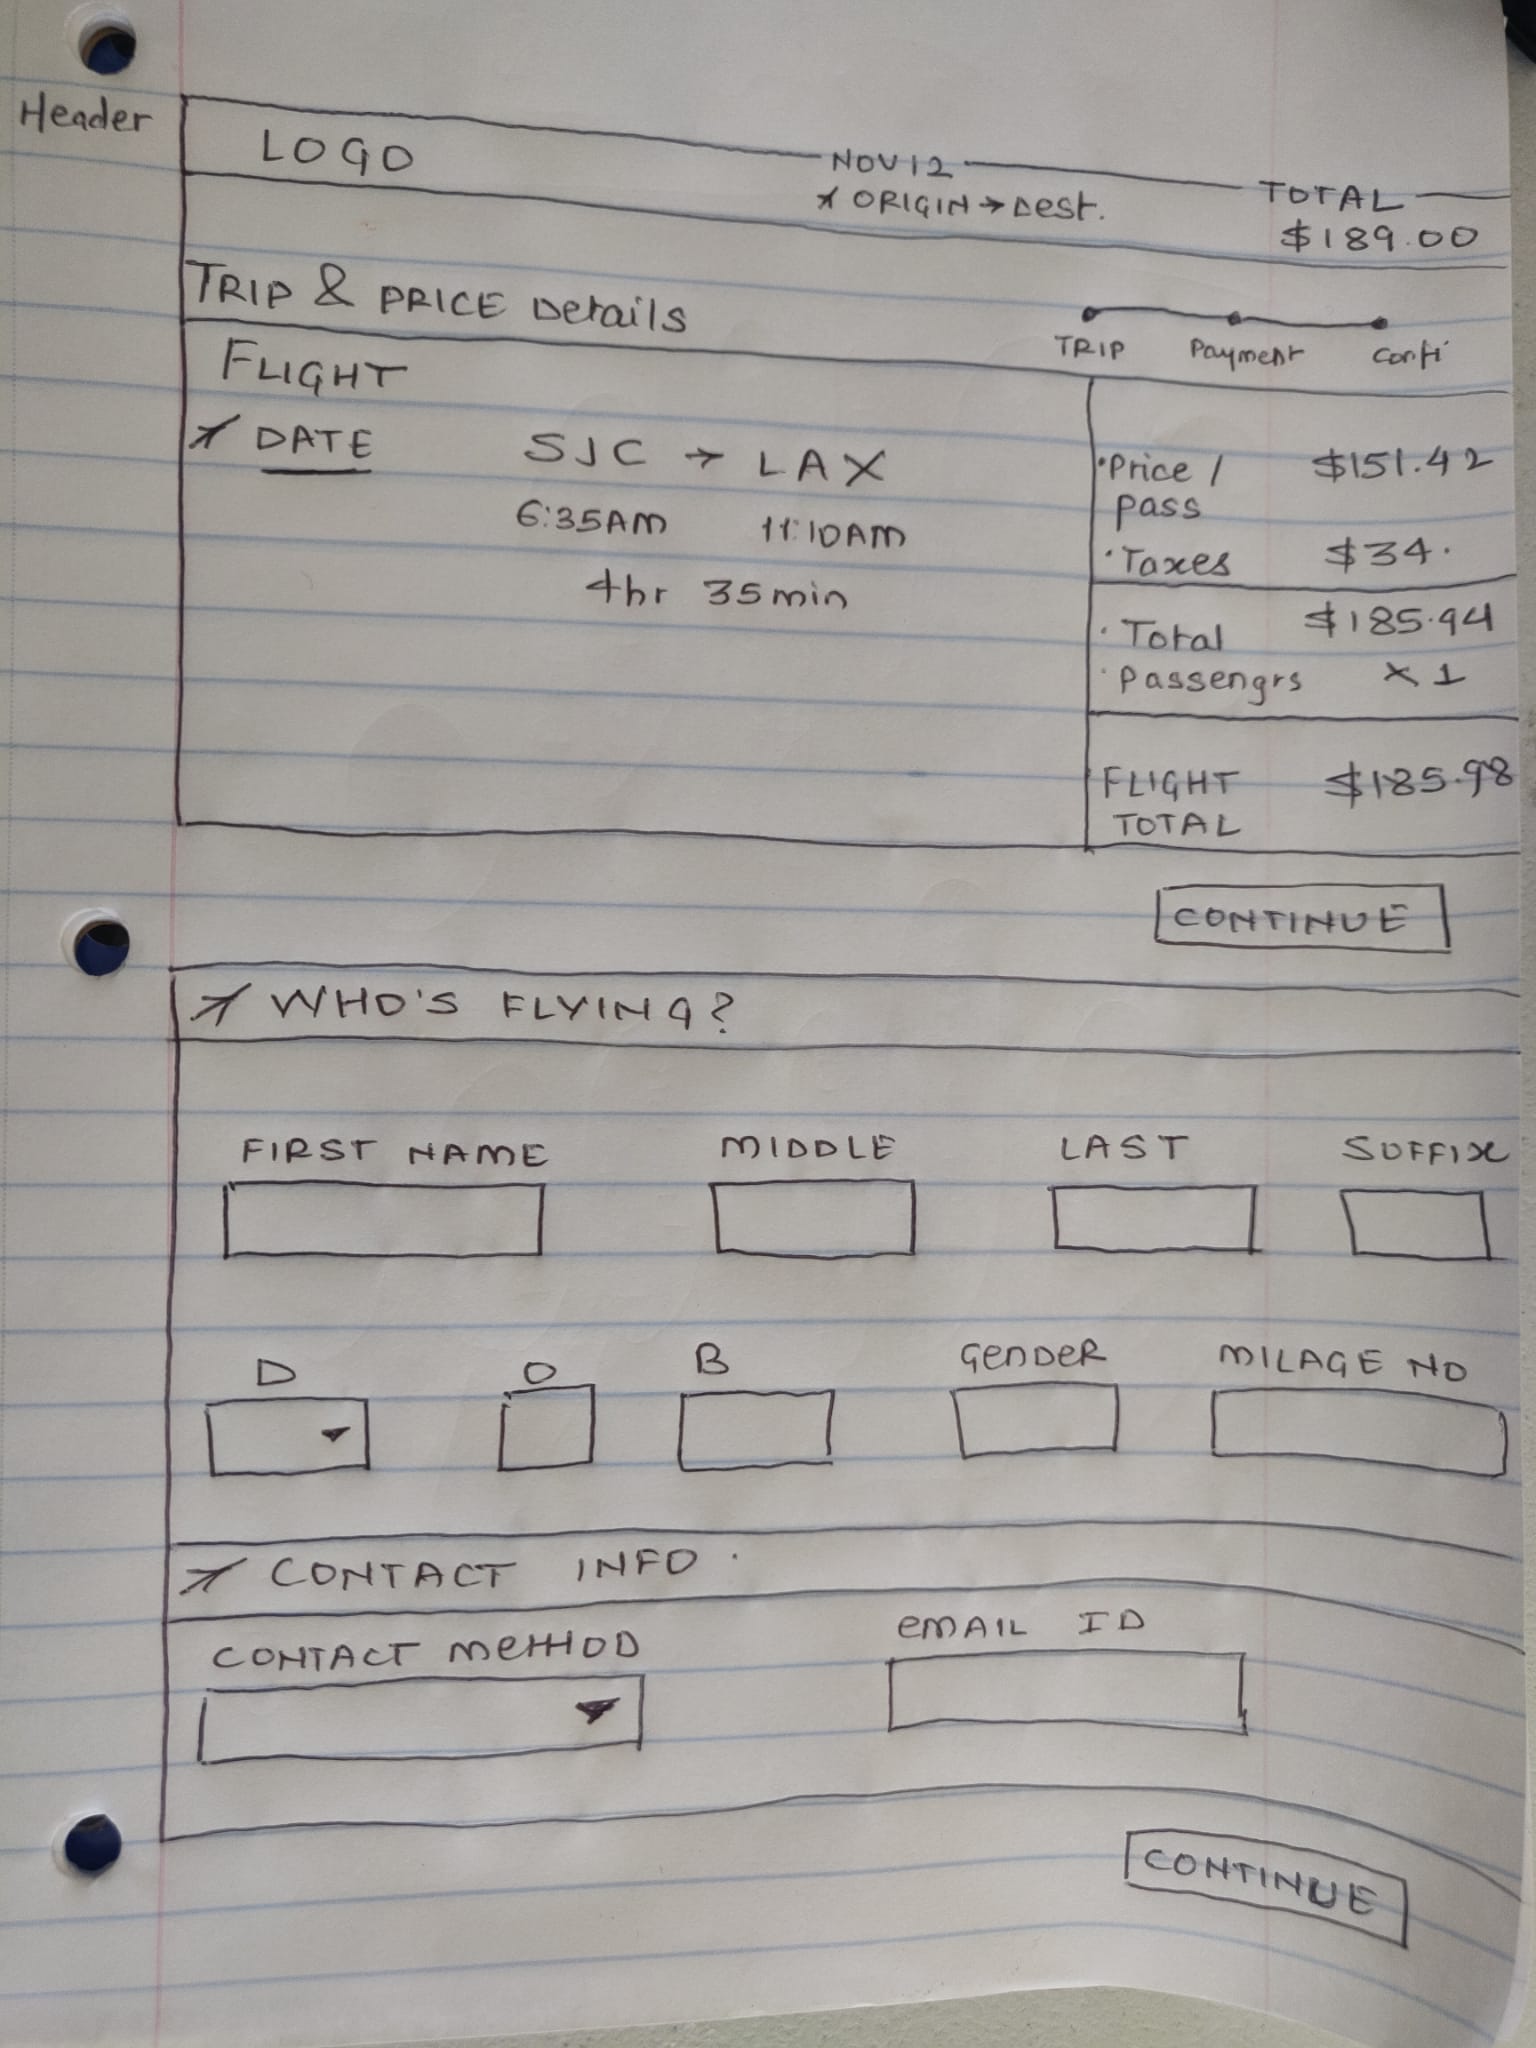 Header
LOGO
NOV 12
ORIGIN → Dest.
TOTAL
$189.00
TRIP & PRICE Details
TRIP Payment Confi
FLIGHT
DATE
SJC → LAX
6:35AM 11:10AM
4hr 35min
·Price / $151.42
pass
·Taxes $34.
·Total $185.94
·Passengrs X 1
FLIGHT $185.98
TOTAL
CONTINUE
WHO'S FLYING?
FIRST NAME MIDDLE LAST SUFFIX
D O B GENDER MILAGE NO
CONTACT INFO.
CONTACT METHOD EMAIL ID
CONTINUE